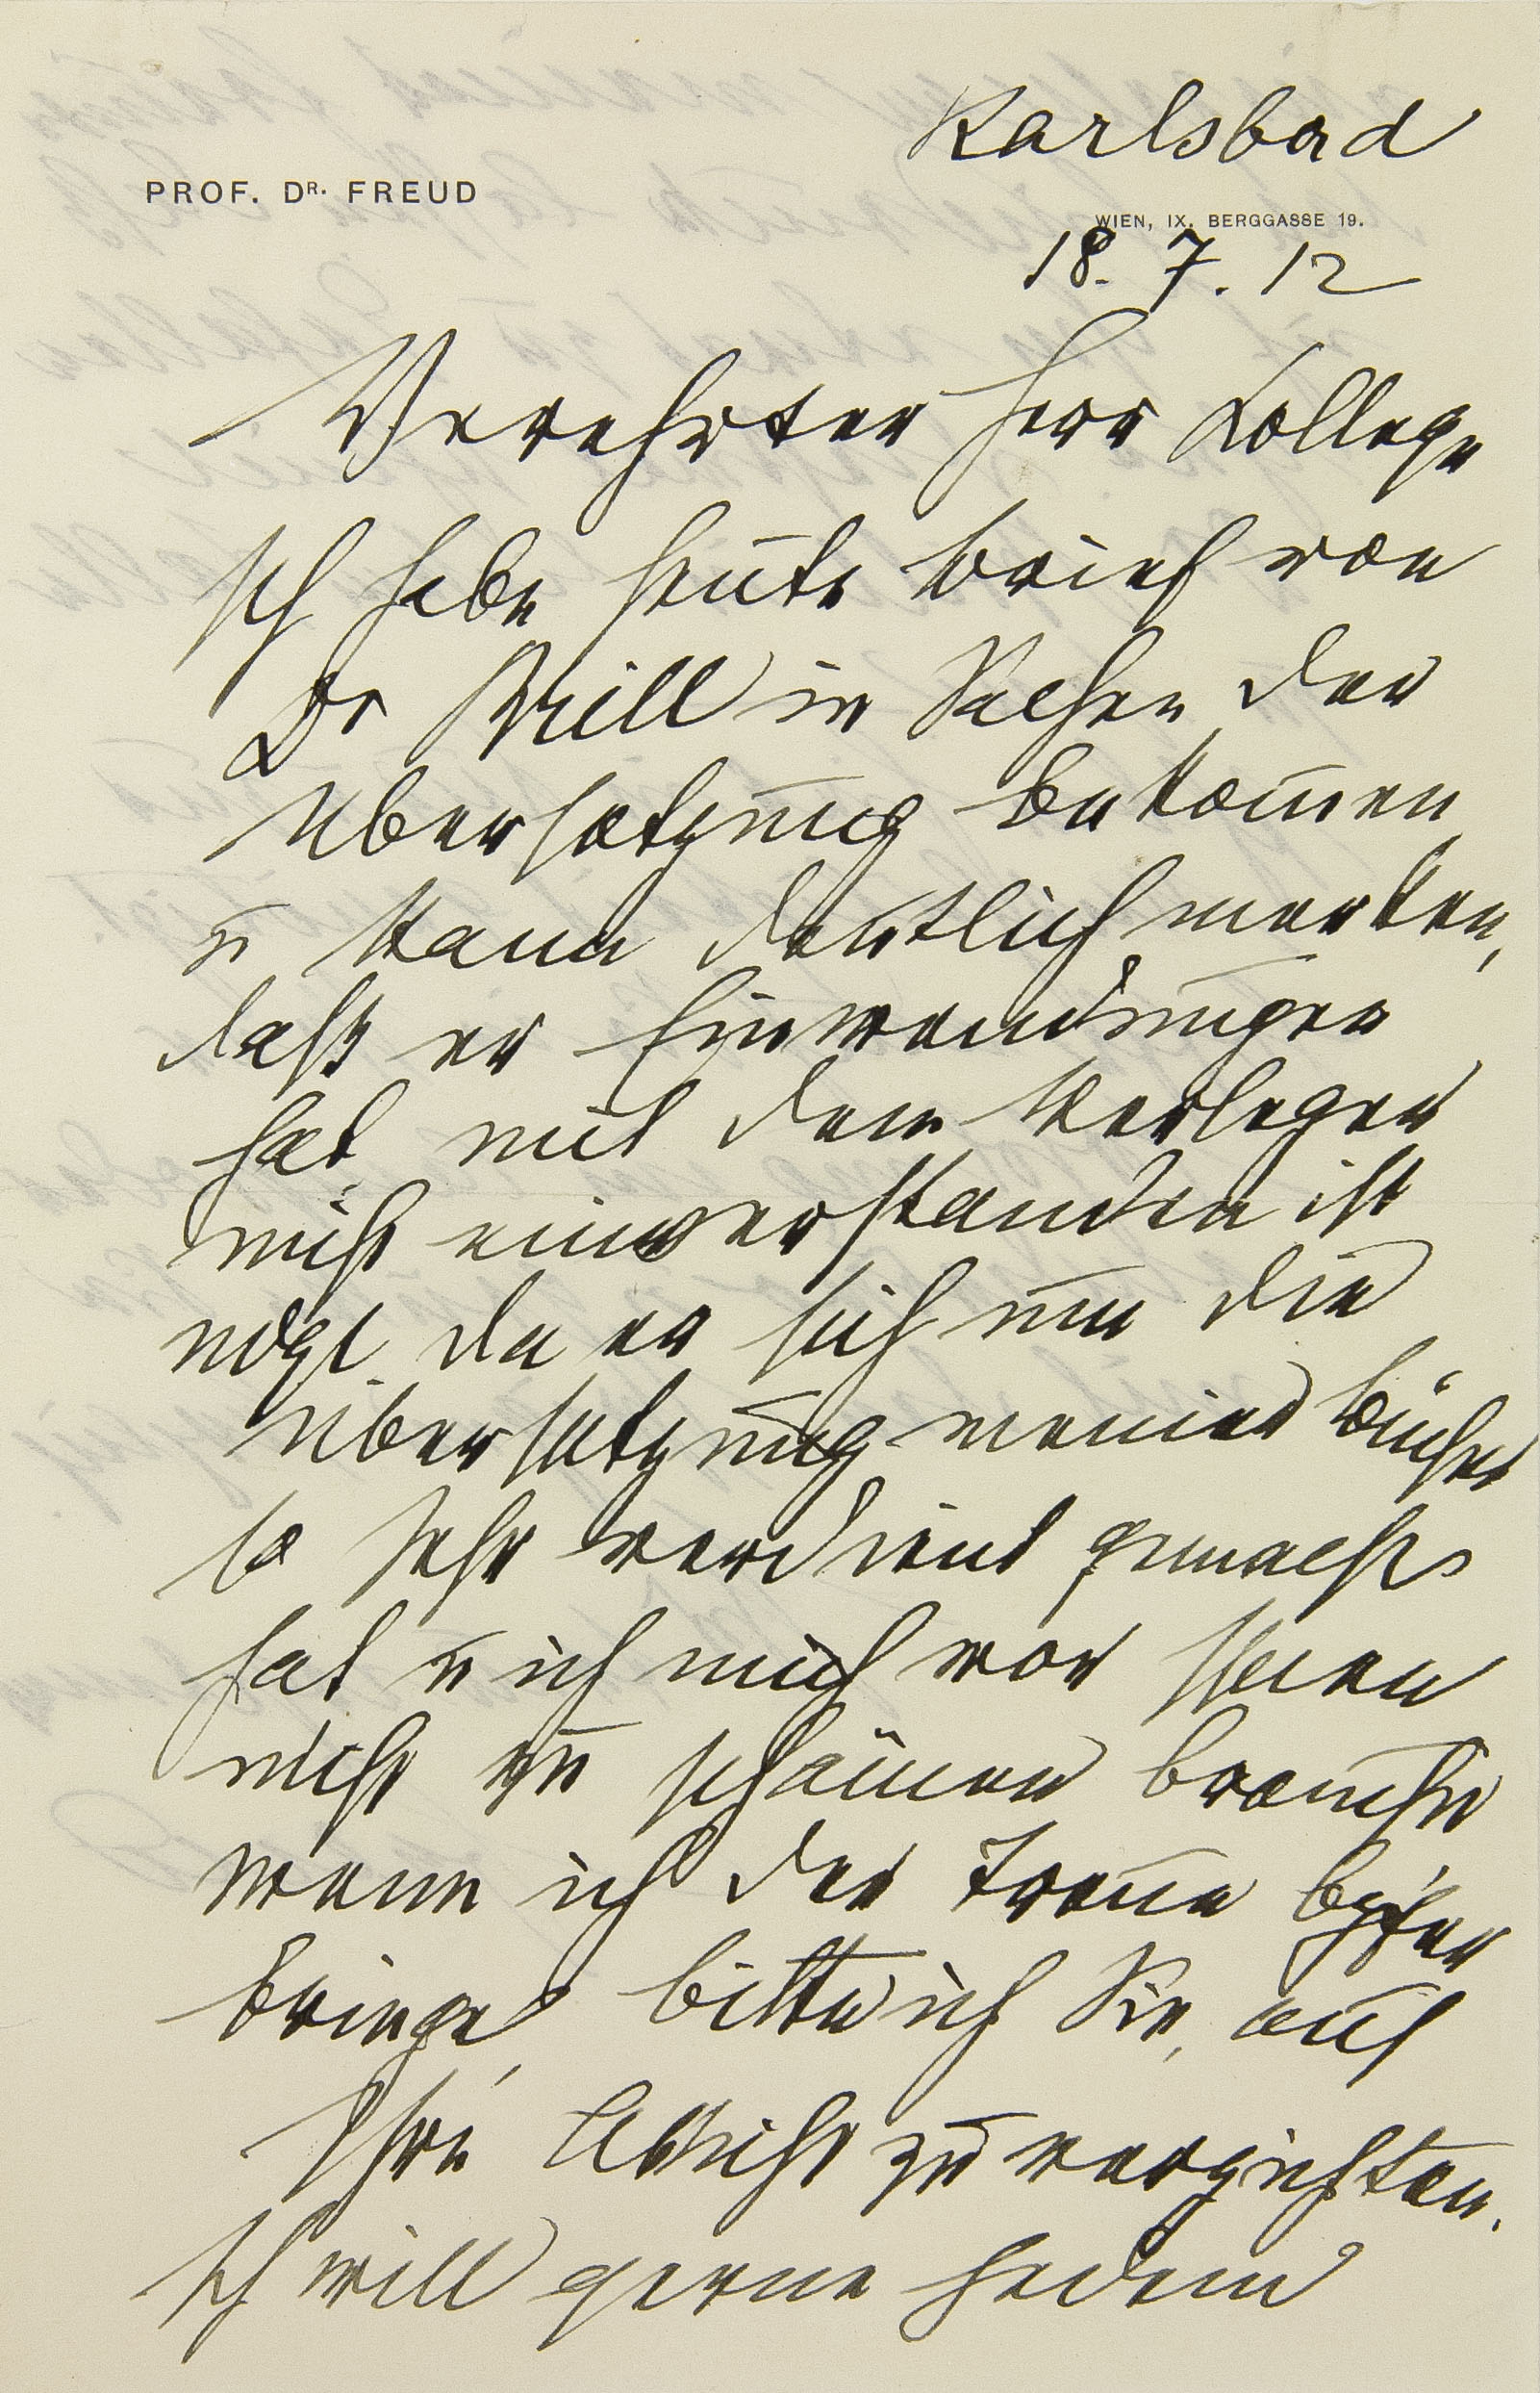 Karlsbad
PROF. DR. FREUD
WIEN, IX. BERGGASSE 19.
18. 7. 12
Verehrter Herr Kollege
Ich habe heute Brief von
Dr Brill in Sachen der
Übersetzung bekom̄en
u kann deutlich merken,
daß er Einwendungen
hat, mit dem Verleger
nicht einverstanden ist
Da er sich um die
Übersetzung meiner Bücher
so sehr verdient gemacht
hat u ich mich vor Ihnen
nicht zu schämen brauche
wenn ich der Treue Opfer
bringe, bitte ich Sie, auf
Ihre Absicht zu verzichten.
Ich will gerne jedem